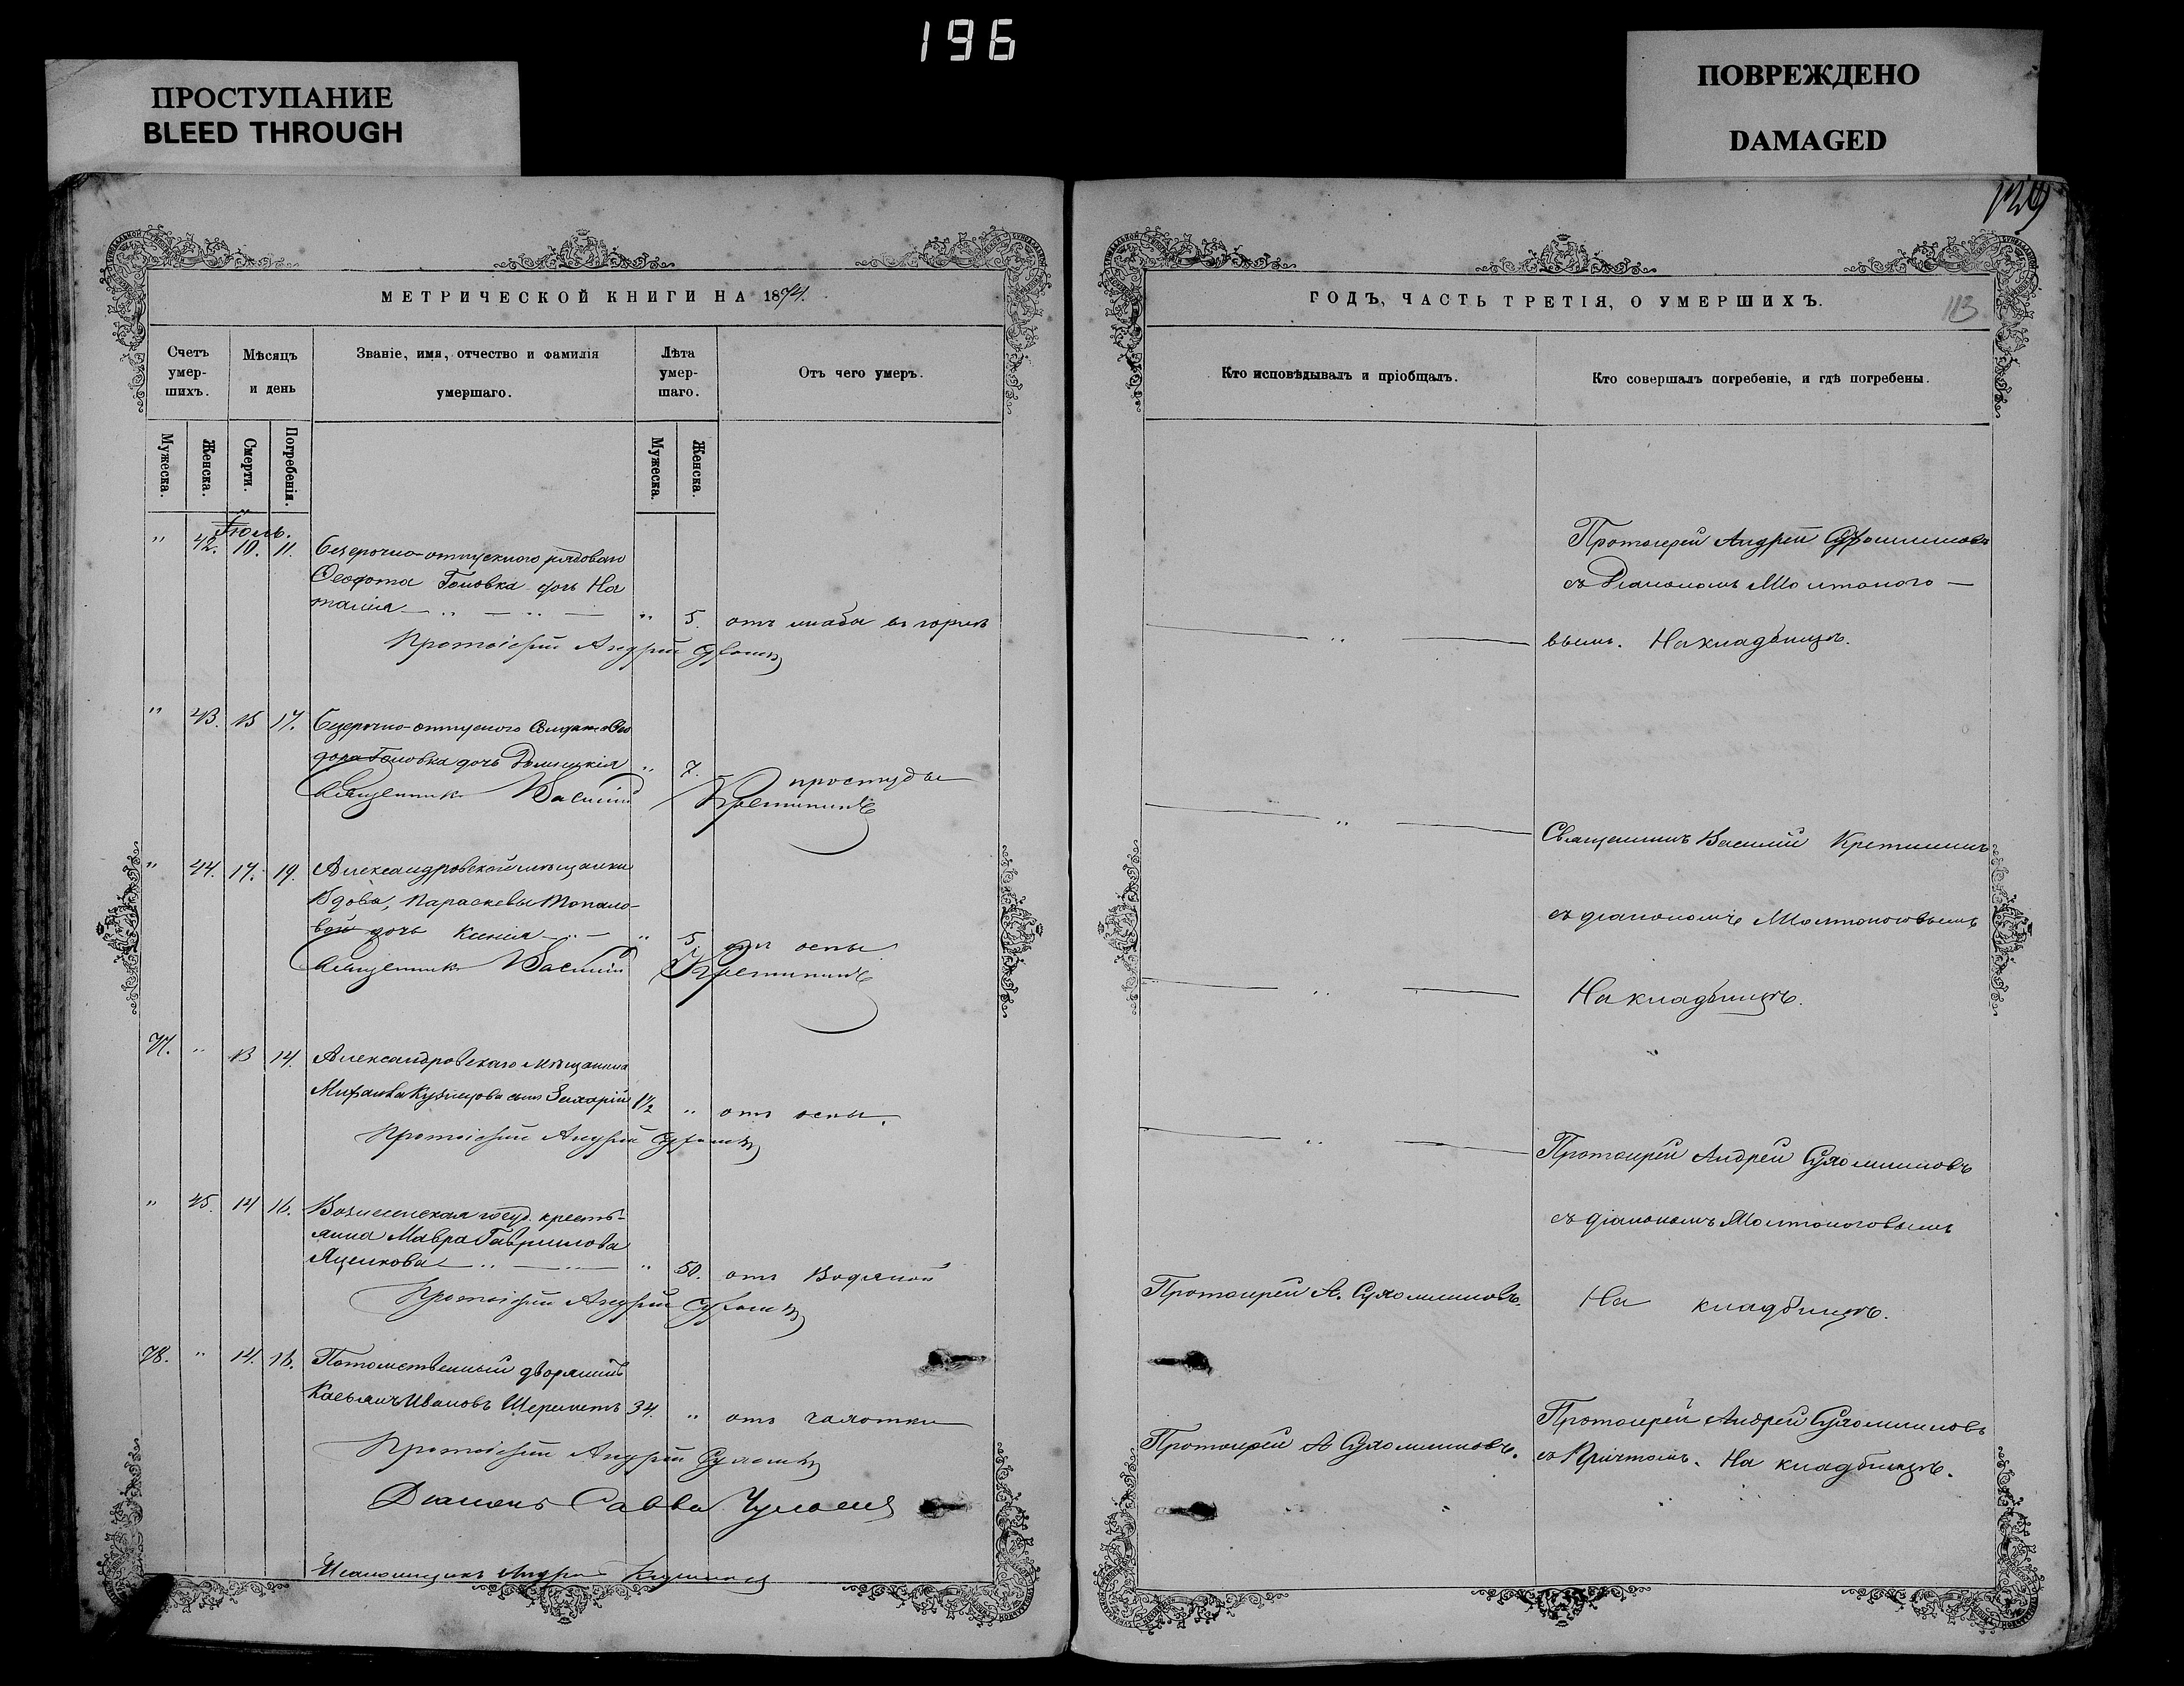 196
ПРОСТУПАНИЕ
BLEED THROUGH
ПОВРЕЖДЕНО
DAMAGED
МЕТРИЧЕСКОЙ КНИГИ НА 1874.
Счетъ умер-шихъ.
Мѣсяцъ и день
Званіе, имя, отчество и фамилія умершаго.
Лѣта умер-шаго.
Отъ чего умеръ.
Мужеска.
Женска.
Смерти.
Погребенія.
Мужеска.
Женска.
Іюль.
" 42. 10. 11. Безсрочно-отпускного рядового
Феодота Головка дочь На
талія " 5. отъ жабы въ горлѣ
Протоіерей Андрей
" 43. 15 17. Безсрочно-отпускного
Головка дочь " 7. простуды
Священникъ Василій Кретининъ
" 44. 17. 19. Александровской мѣщанки
Вдовы, Параскевы Топало-
вой дочь Ксенія " 5. отъ оспы.
Священникъ Василій Кретининъ
77. " 13 14. Александровскаго мѣщанина
Михаила Кузнецова сынъ Захарій 1½ " отъ оспы.
Протоіерей Андрей
" 45. 14 16. Вознесенская госуд. кресть-
янка Мавра Гаврилова
Яценкова " 50. отъ Водяной
Протоіерей Андрей
78. " 14. 16. Потомственный дворянинъ
Касьянъ Ивановъ Шереметъ 34. " отъ чахотки
Протоіерей Андрей
Діаконъ Савва
Псаломщикъ
129
ГОДЪ, ЧАСТЬ ТРЕТІЯ, О УМЕРШИХЪ.
113
Кто исповѣдывалъ и пріобщалъ.
Кто совершалъ погребеніе, и гдѣ погребены.
Протоіерей Андрей Сухомлиновъ
съ Діакономъ Молтоного-
вымъ. На кладбищѣ.
Священникъ Василій Кретининъ
съ діакономъ Молтоноговымъ
На кладбищѣ.
Протоіерей Андрей Сухомлиновъ
съ діакономъ Молтоноговымъ
Протоіерей А. Сухомлиновъ. На кладбищѣ.
Протоіерей Андрей Сухомлиновъ
Протоіерей А Сухомлиновъ. съ Причтомъ. На кладбищѣ.